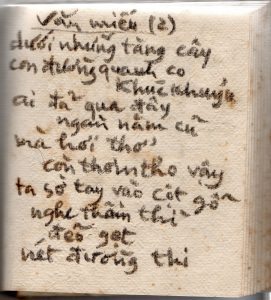 Văn miếu (2)
dưới những tàng cây
con đường quanh co
khúc khuỷu
ai đã qua đây
ngàn năm cũ
mà hơi thơ
còn thơm tho vậy
ta sờ tay vào cột gỗ
nghe thầm thì
đẽo gọt
nét đường thi